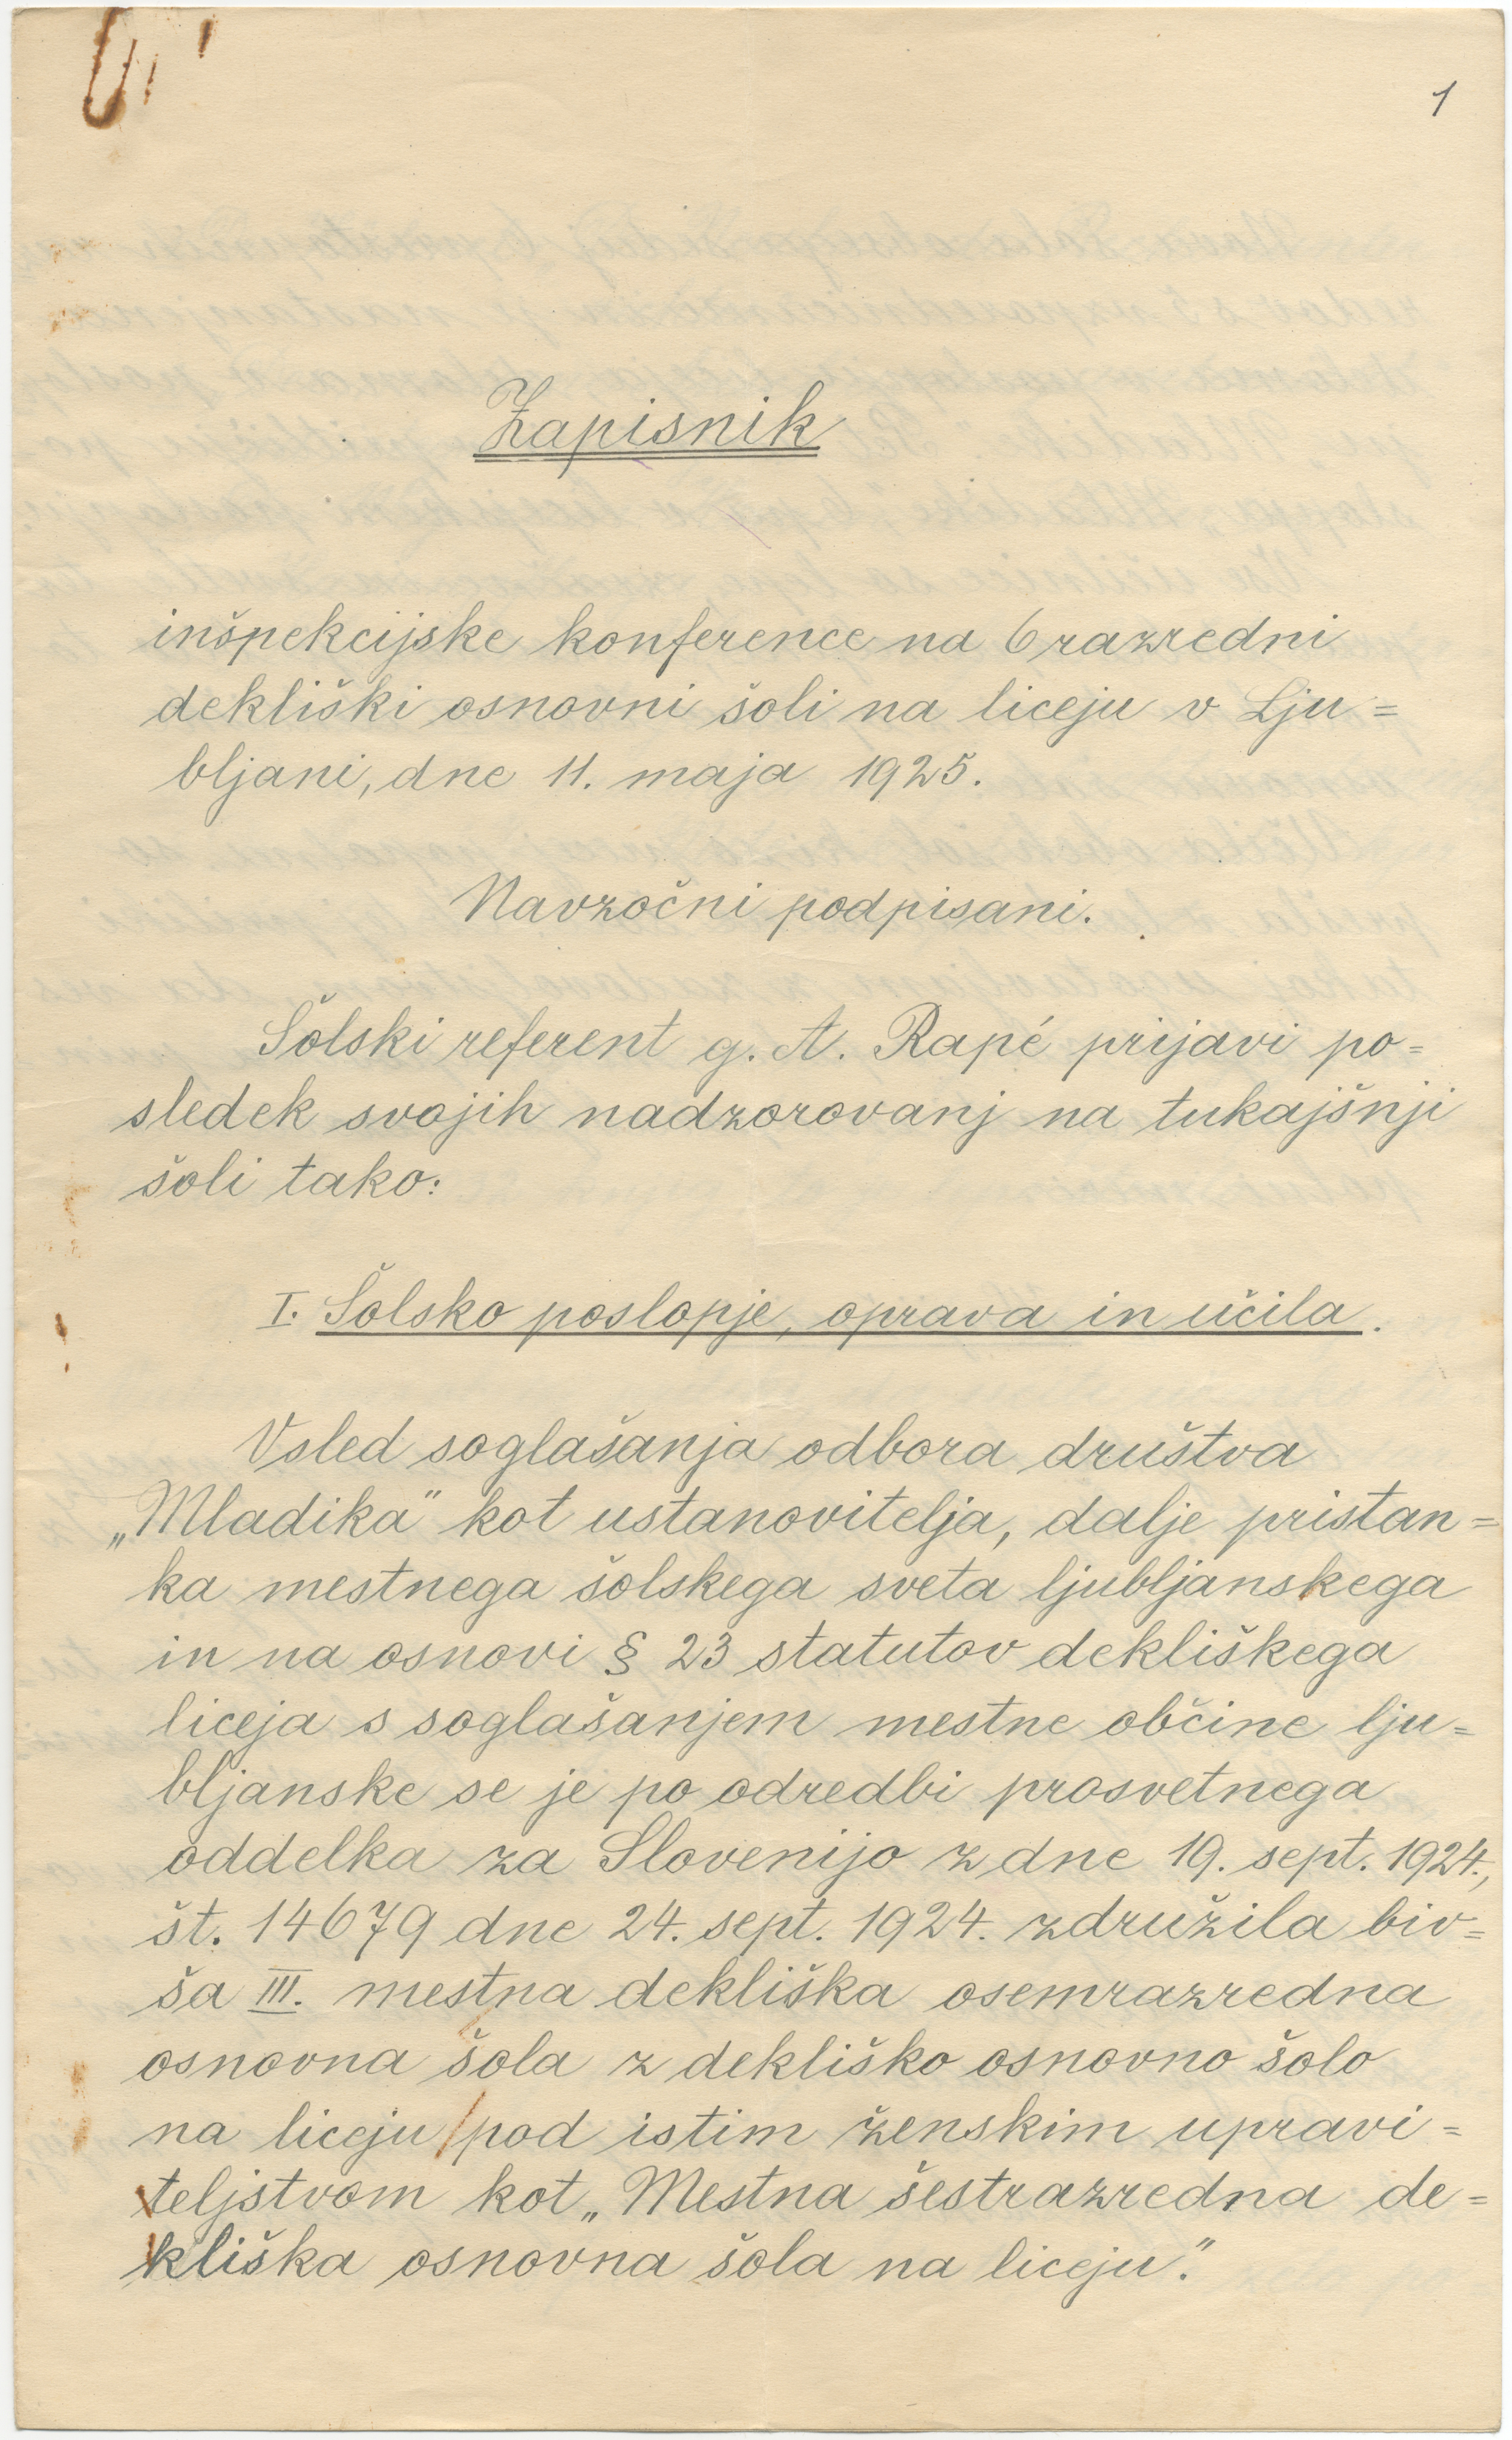 1
Zapisnik
inšpekcijske konference na 6 razredni
dekliški osnovni šoli na liceju v Lju=
bljani, dne 11. maja 1925.
Navzočni podpisani.
Šolski referent g. A. Rapé prijavi po=
sledek svojih nadzorovanj na tukajšnji
šoli tako:
I. Šolsko poslopje, oprava in učila.
Vsled soglašanja odbora društva
„Mladika" kot ustanovitelja, dalje pristan=
ka mestnega šolskega sveta ljubljanskega
in na osnovi § 23 statutov dekliškega
liceja s soglašanjem mestne občine lju=
bljanske se je po odredbi prosvetnega
oddelka za Slovenijo z dne 19. sept. 1924.,
št. 14679 dne 24. sept. 1924. združila biv=
ša III. mestna dekliška osemrazredna
osnovna šola z dekliško osnovno šolo
na liceju pod istim ženskim upravi=
teljstvom kot „Mestna šestrazredna de=
kliška osnovna šola na liceju".